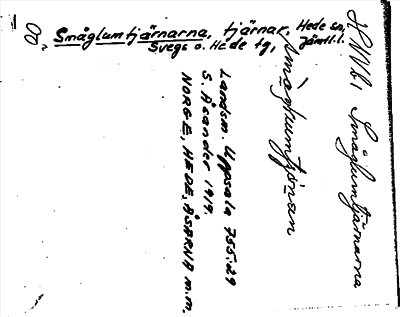 Småglumtjärnarna, tjärnar, Hede sn,
Svegs o. Hede tg, Jämtl.l.
Småglumtjärnarna
Småglumtjọ̈nan
Landsm. Uppsala 755:29
S. Åsander 1919.
NORGE, HEDE, ÅSARNA m.m.